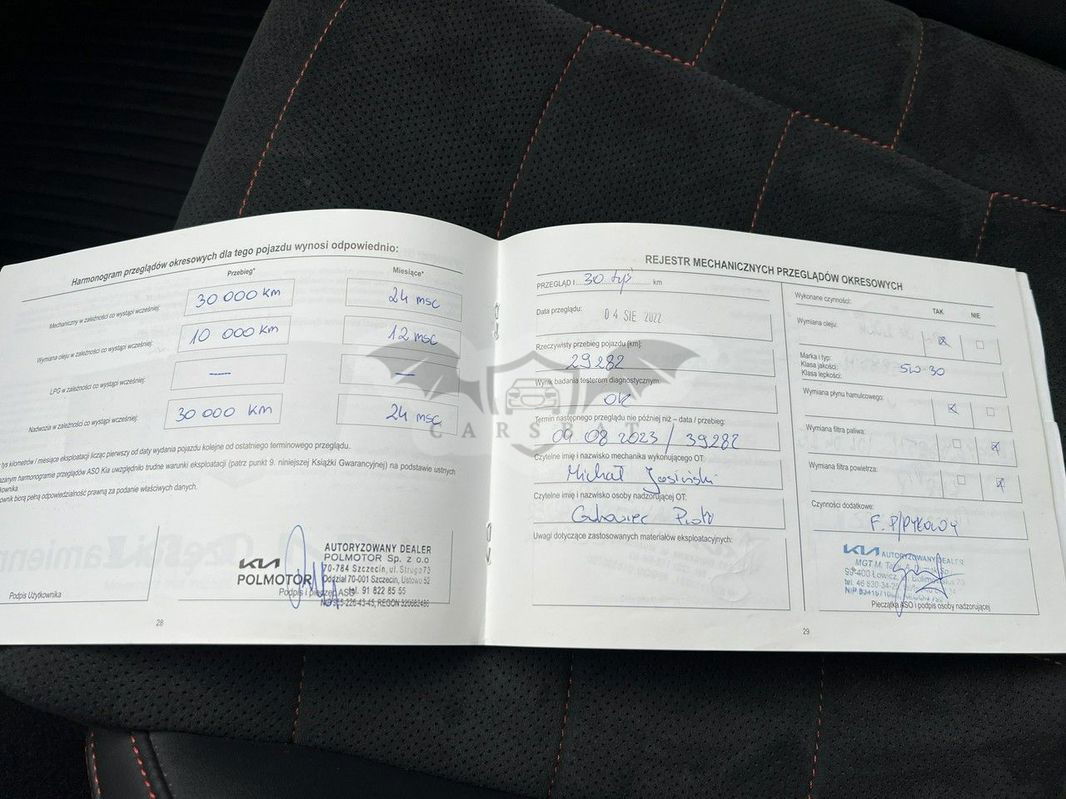 Harmonogram przeglądów okresowych dla tego pojazdu wynosi odpowiednio:
Przebieg*
Miesiące*
Mechaniczny w zależności co wystąpi wcześniej:
30 000 km
24 msc
Wymiana oleju w zależności co wystąpi wcześniej:
10 000 km
12 msc
LPG w zależności co wystąpi wcześniej:
—
—
Nadwozia w zależności co wystąpi wcześniej:
30 000 km
24 msc
tys kilometrów / miesiące eksploatacji licząc pierwszy od daty wydania pojazdu kolejne od ostatniego terminowego przeglądu.
harmonogramie przeglądów ASO Kia uwzględniło trudne warunki eksploatacji (patrz punkt 9. niniejszej Książki Gwarancyjnej) na podstawie ustnych
biorą pełną odpowiedzialność prawną za podanie właściwych danych.
Podpis Użytkownika
KIA
POLMOTOR
AUTORYZOWANY DEALER
POLMOTOR Sp. z o.o.
70-784 Szczecin, ul. Struga 73
Oddział 70-001 Szczecin, Ustowo 52
tel. 91 822 85 55
28
REJESTR MECHANICZNYCH PRZEGLĄDÓW OKRESOWYCH
PRZEGLĄD 30 tyś km
Data przeglądu:
04 SIE 2022
Rzeczywisty przebieg pojazdu [km]:
29282
Wynik badania testerem diagnostycznym:
OK
Termin następnego przeglądu nie później niż – data / przebieg:
09 08 2023 / 39282
Czytelne imię i nazwisko mechanika wykonującego OT:
Michał Jasiński
Czytelne imię i nazwisko osoby nadzorującej OT:
Piotr
Uwagi dotyczące zastosowanych materiałów eksploatacyjnych:
Wykonane czynności:
TAK
NIE
Wymiana oleju:
Marka i typ:
Klasa jakości:
Klasa lepkości:
5W-30
Wymiana płynu hamulcowego:
Wymiana filtra paliwa:
Wymiana filtra powietrza:
Czynności dodatkowe:
F. P/PYŁOWY
KIA AUTORYZOWANY DEALER
99-400 Łowicz
Pieczątka ASO i podpis osoby nadzorującej
29
CARSBAT